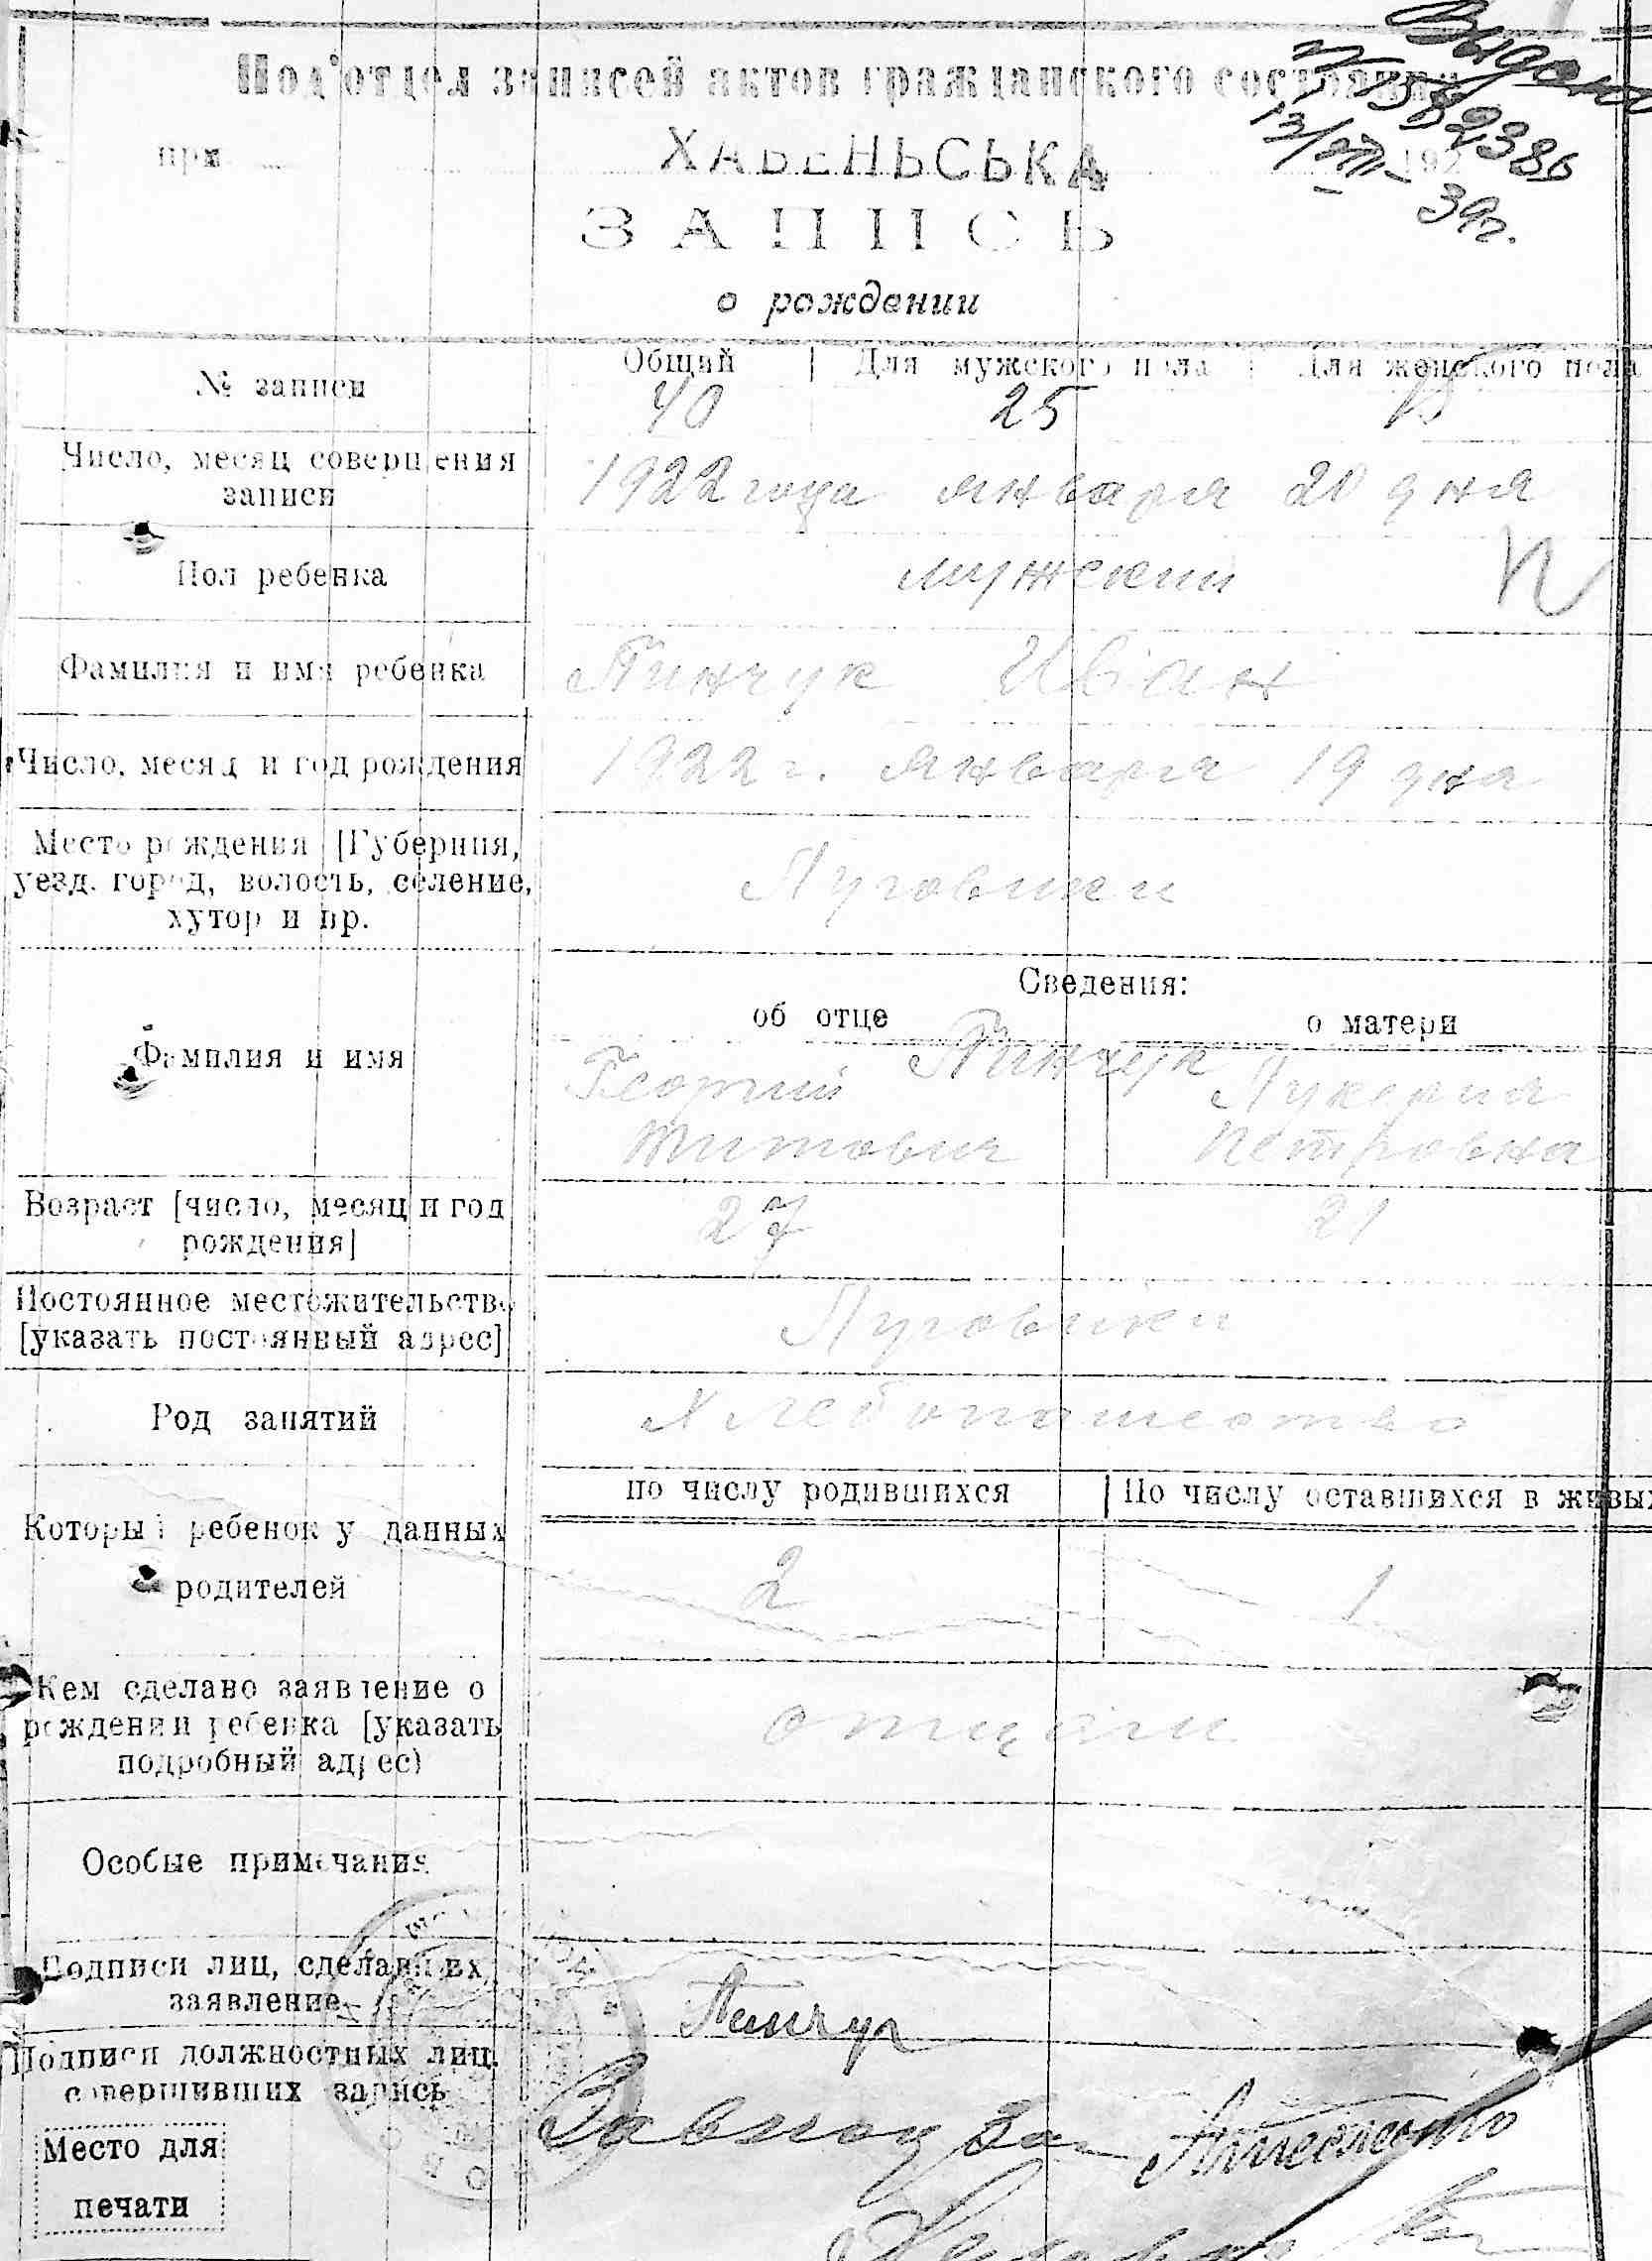 Выдано
№ 1582386
13/VIII - 39г.
Под'отдел записей актов гражданского состояния
при ХАБЕНЬСЬКА 192
ЗАПИСЬ
о рождении
№ записи Общий Для мужского пола Для женского пола
40 25
Число, месяц совершения
записи
1922 года января 20 дня
Пол ребенка мужский
Фамилия и имя ребенка Пинчук Иван
Число, месяц и год рождения 1922 г. января 19 дня
Место рождения [Губерния,
уезд, город, волость, селение,
хутор и пр.
Луговики
Сведения:
об отце о матери
Фамилия и имя
Пинчук
Георгий Лукерия
Титович Петровна
Возраст [число, месяц и год
рождения]
27 21
Постоянное местожительство
[указать постоянный адрес]
Луговики
Род занятий Хлебопашество
по числу родившихся По числу оставшихся в живых
Который ребенок у данных
родителей
2 1
Кем сделано заявление о
рождении ребенка [указать
подробный адрес)
отцом
Особые примечания
Подписи лиц, сделавших
заявление
Пинчук
Подписи должностных лиц,
совершивших запись
Завпод
Место для
печати